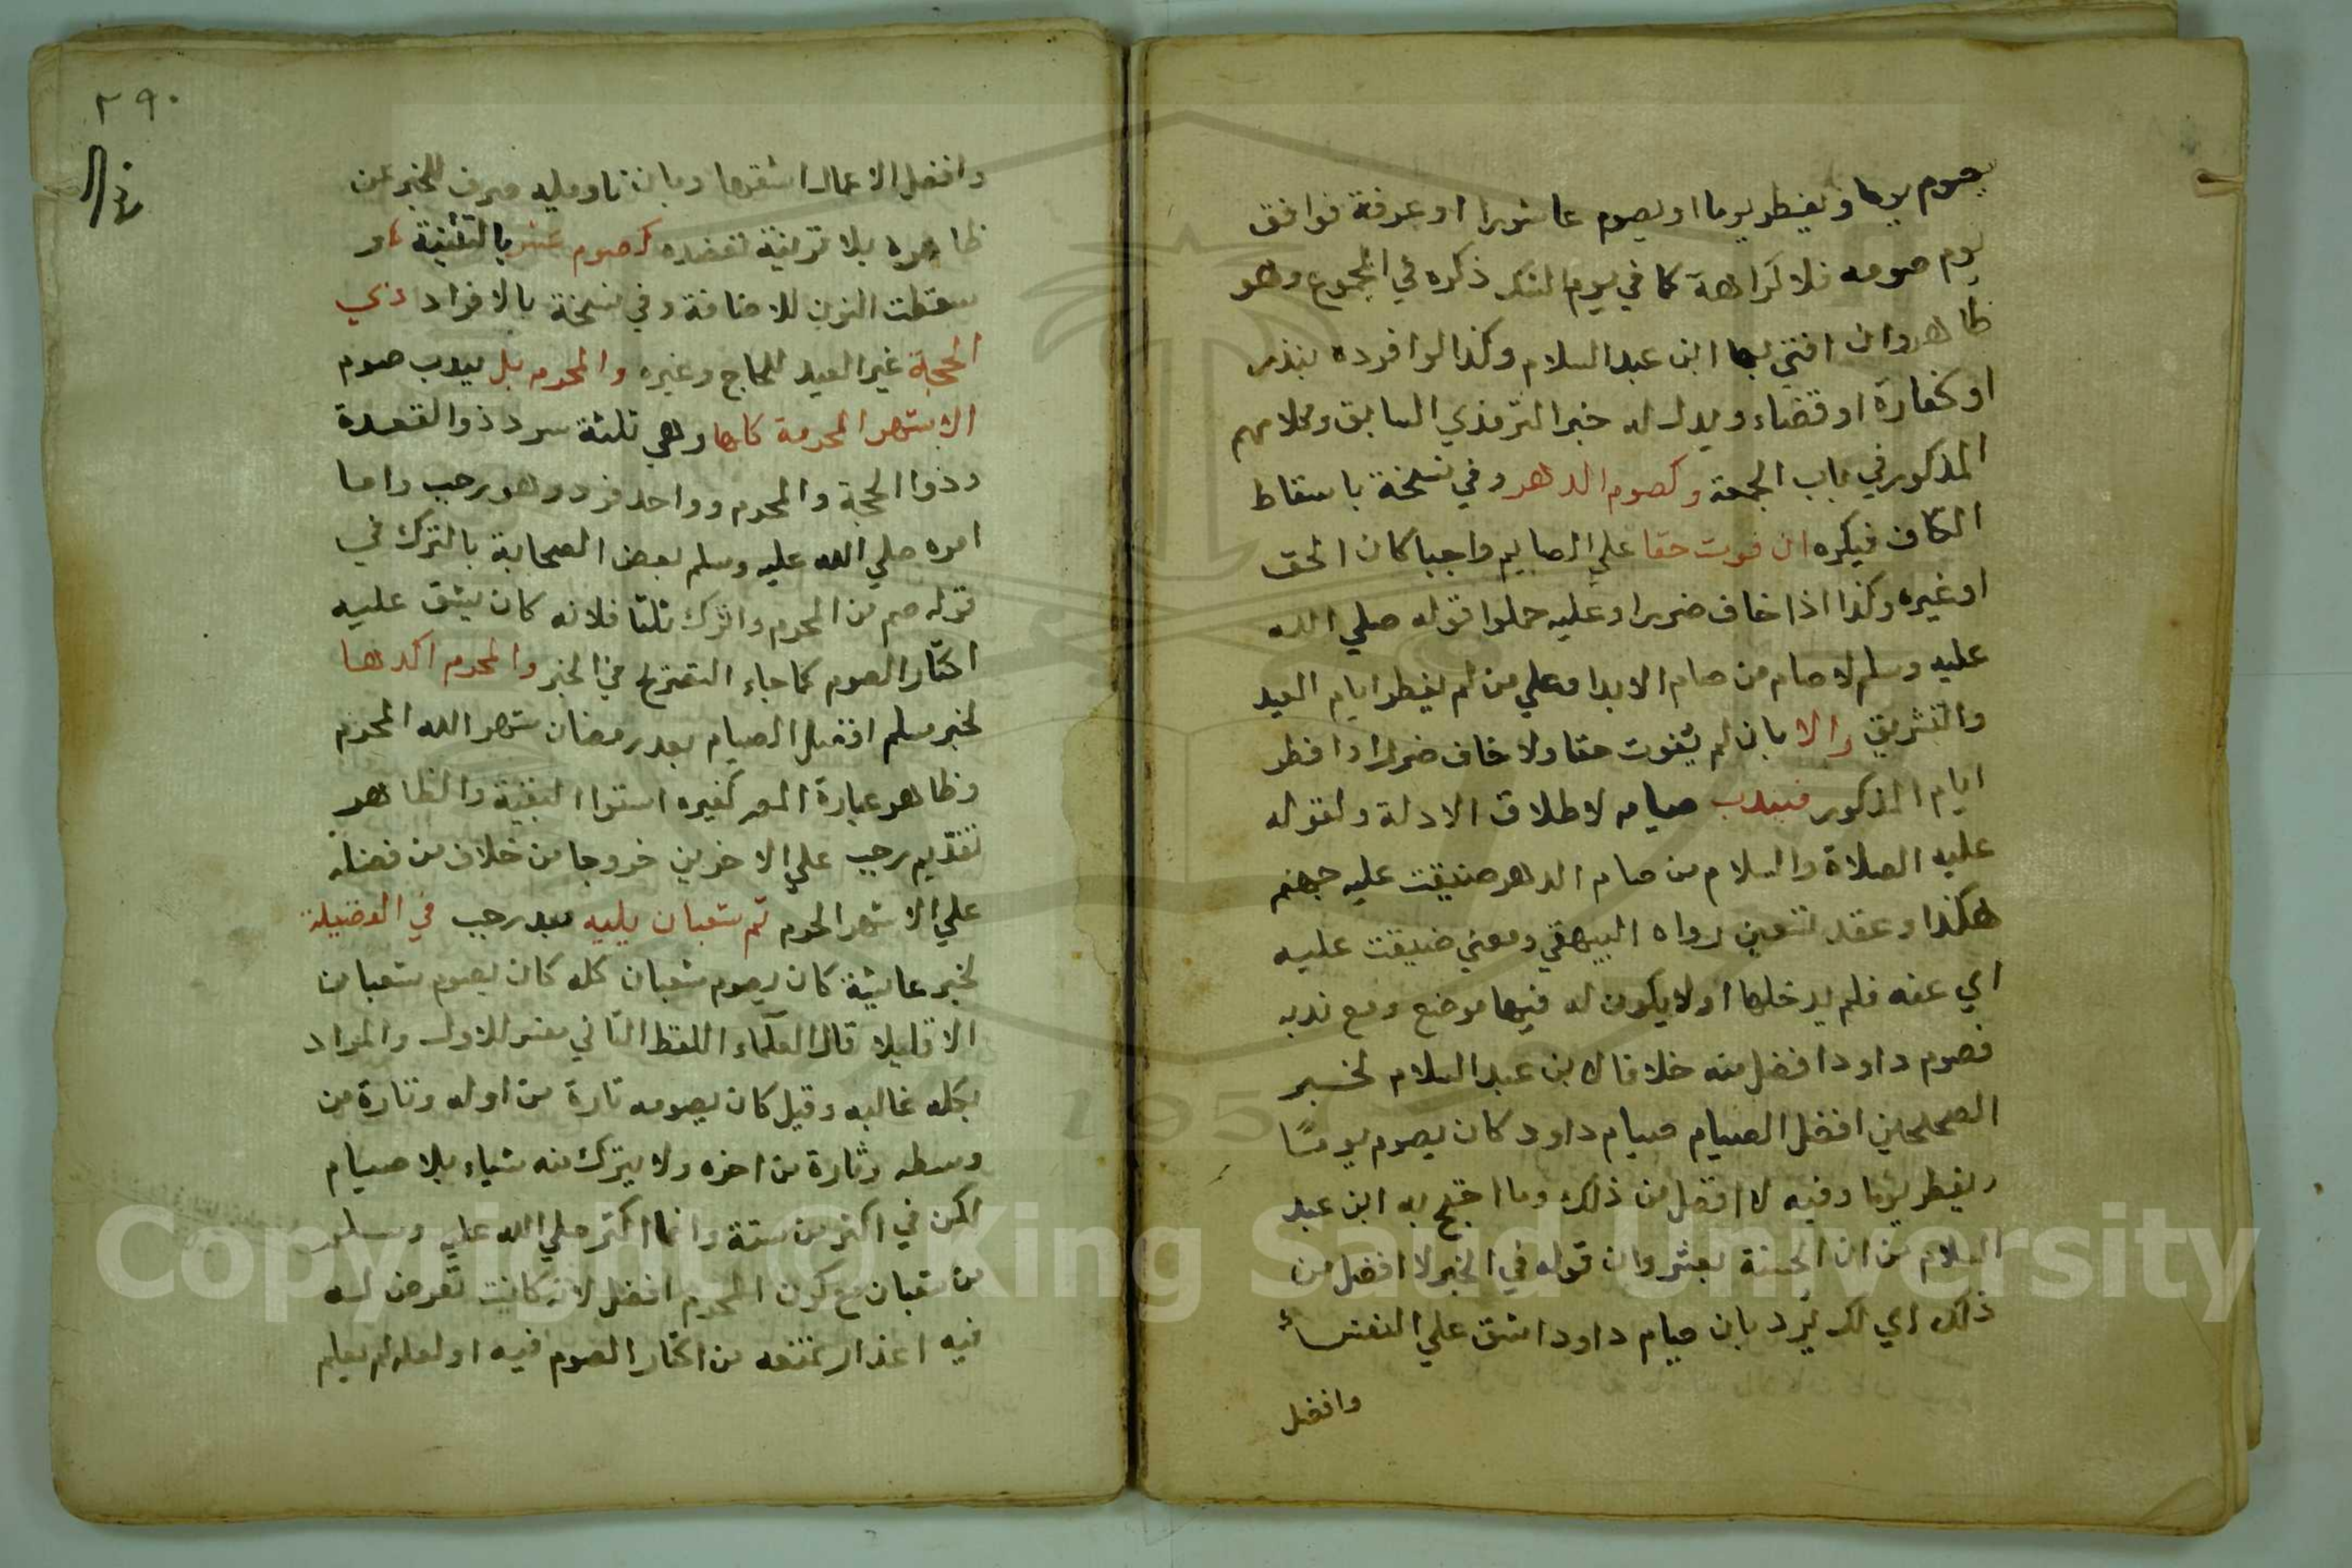 يصوم يوما ويفطر يوما او يصوم عاشورا او عرفة فوافق
يوم صومه فلا كراهة كما في يوم الشك ذكره في المجموع وهو
ظاهر وان افتي بها ابن عبد السلام وكذا لو افرده بنذر
او كفارة او قضاء ويدل له خبر الترمذي السابق وكلامهم
المذكور في باب الجمعة وكصوم الدهر وفي نسخة باسقاط
الكاف فيكره ان فوت حقا علي الصايم واجبا كان الحق
او غيره وكذا اذا خاف ضررا وعليه حملوا قوله صلي الله
عليه وسلم لا صام من صام الابد او علي من لم يفطر ايام العيد
والتشريق والا بان لم يفوت حقا ولا خاف ضررا وافطر
ايام المذكور فيندب صيامه لاطلاق الادلة ولقوله
عليه الصلاة والسلام من صام الدهر ضيقت عليه جهنم
هكذا وعقد تسعين رواه البيهقي ومعني ضيقت عليه
اي عنه فلم يدخلها او لا يكون له فيها موضع ومع ندبه
فصوم داود افضل منه خلافا لابن عبد السلام لخبر
الصحيحين افضل الصيام صيام داود كان يصوم يومًا
ويفطر يوما وفيه لا افضل من ذلك وما احتج به ابن عبد
السلام من ان الحسنة بعشر وان قوله في الخبر لا افضل من
ذلك اي لك يرد بان صيام داود اشق علي النفس
وافضل
٢٩٠
وافضل الاعمال اشقها وبان تاويله صرف للخبر عن
ظاهره بلا قرينة تعضده كصوم عشر بالتثنية
سقطت النون للاضافة وفي نسخة بالافراد ذي
الحجة غير العيد للحاج وغيره والمحرم بل يندب صوم
الاشهر المحرمة كلها وهي ثلثة سرد ذو القعدة
وذوا الحجة والمحرم وواحد فرد وهو رجب واما
امره صلي الله عليه وسلم بعض الصحابة بالترك في
قوله صم من المحرم واترك ثلثا فلانه كان يشق عليه
اكثار الصوم كما جاء التصريح في الخبر والمحرم اكدها
لخبر مسلم افضل الصيام بعد رمضان شهر الله المحرم
وظاهر عبارة المص كغيره استوا البقية والظاهر
تقديم رجب علي الاخرين خروجا من خلاف من فضله
علي الاشهر الحرم ثم شعبان يليه بعد رجب في الفضيلة
لخبر عايشة كان يصوم شعبان كله كان يصوم شعبان
الا قليلا قال العلماء اللفظ الثاني مفسر للاول والمراد
بكله غالبه وقيل كان يصومه تارة من اوله وتارة من
وسطه وتارة من اخره ولا يترك منه شياء بلا صيام
لكن في اكثر من سنة وانما اكثر صلي الله عليه وسلم
من شعبان مع كون المحرم افضل لانه كانت تعرض له
فيه اعذار تمنعه من اكثار الصوم فيه او لعله لم يعلم
Copyright © King Saud University
195